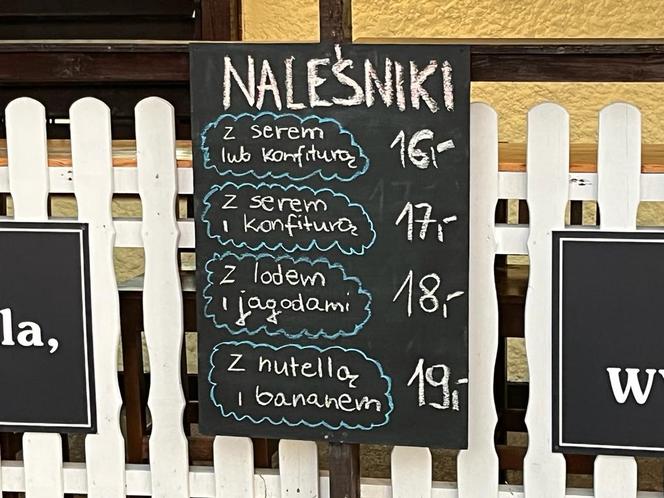 NALEŚNIKI
z serem
lub konfiturą 16,-
z serem
i konfiturą 17,-
z lodem
i jagodami 18,-
z nutellą
i bananem 19,-
la,
wy